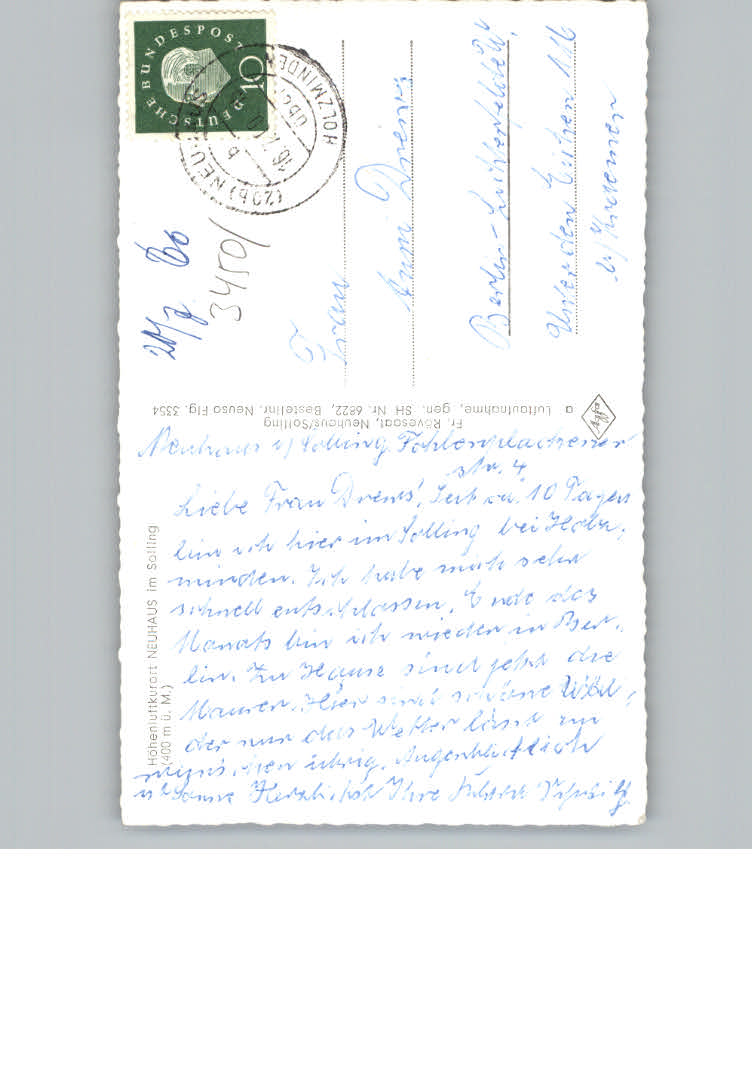 Neuhaus i/Solling, Fohlenplackener
str. 4
Liebe Frau Drews! Seit ca. 10 Tagen
bin ich hier im Solling bei Holz-
minden. Ich habe mich sehr
schnell entschlossen. Ende des
Monats bin ich wieder in Ber-
lin. Zu Hause sind jetzt die
Maurer. Hier sind schöne Wäl-
der nur das Wetter lässt zu
wünschen übrig. Augenblicklich
ist Sonne Herzlichst Ihre
Höhenluftkurort NEUHAUS im Solling
(400 m ü. M.)
Fr. Rövesaat, Neuhaus/Solling
a Luftaufnahme, gen. SH Nr. 6822, Bestellnr. Neuso Flg. 3354
Agfa
DEUTSCHE BUNDESPOST
10
(20b) NEUHAUS
HOLZMINDEN
b
24/7. 60
3450/
Frau
Anni Drews
Berlin-Lichterfelde W.
Unter den Eichen 116
b/